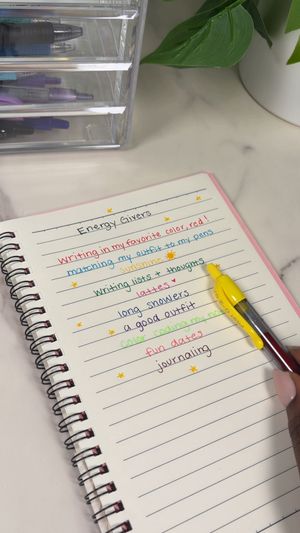 Energy Givers
Writing in my favorite color, red!
matching my outfit to my pens
sunshine
Writing lists + thoughts
lattes ♥
long showers
a good outfit
color coding my
fun dates
journaling